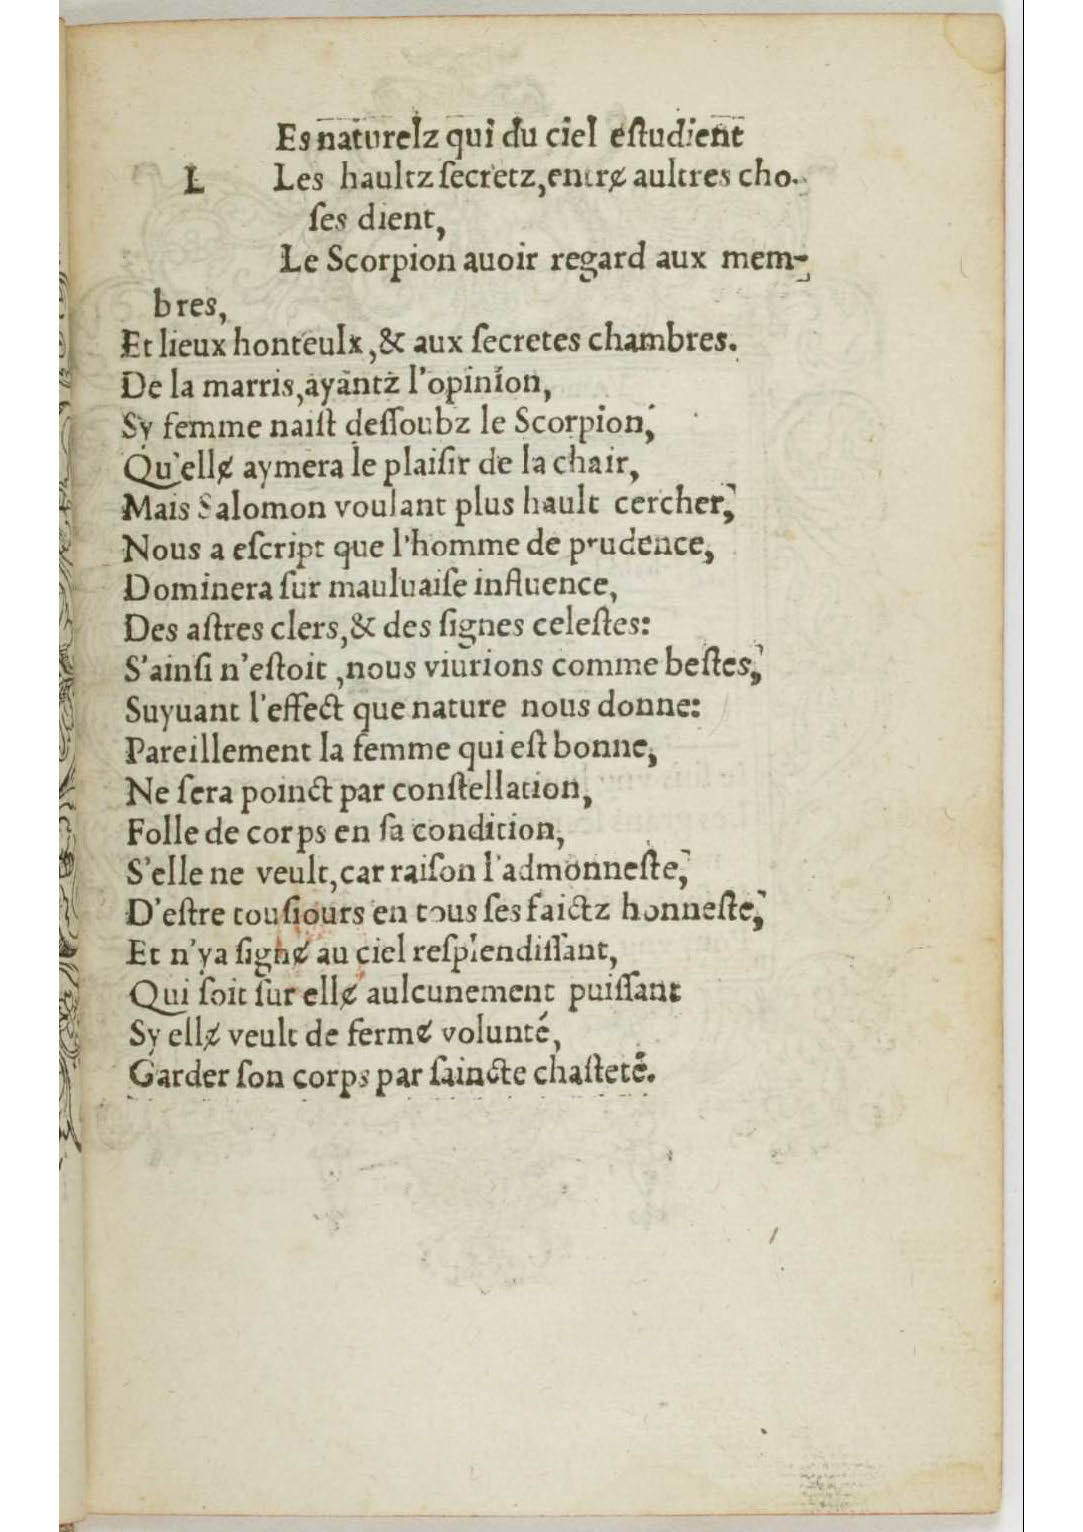 Es naturelz qui du ciel eſtudient
L Les haultz ſecretz, entrɇ aultres cho-
ſes dient,
Le Scorpion auoir regard aux mem-
bres,
Et lieux honteulx, & aux ſecretes chambres.
De la marris, ayantz l'opinion,
Sy femme naiſt deſſoubz le Scorpion,
Qu'ellɇ aymera le plaiſir de la chair,
Mais Salomon voulant plus hault cercher,
Nous a eſcript que l'homme de prudence,
Dominera ſur mauluaiſe influence,
Des aſtres clers, & des ſignes celeſtes:
S'ainſi n'eſtoit, nous viurions comme beſtes,
Suyuant l'effect que nature nous donne:
Pareillement la femme qui eſt bonne,
Ne ſera poinct par conſtellation,
Folle de corps en ſa condition,
S'elle ne veult, car raiſon l'admonneſte,
D'eſtre touſiours en tous ſes faictz honneſte,
Et n'ya ſignɇ au ciel reſplendiſſant,
Qui ſoit ſur ellɇ aulcunement puiſſant
Sy ellɇ veult de fermɇ volunté,
Garder ſon corps par ſaincte chaſteté.